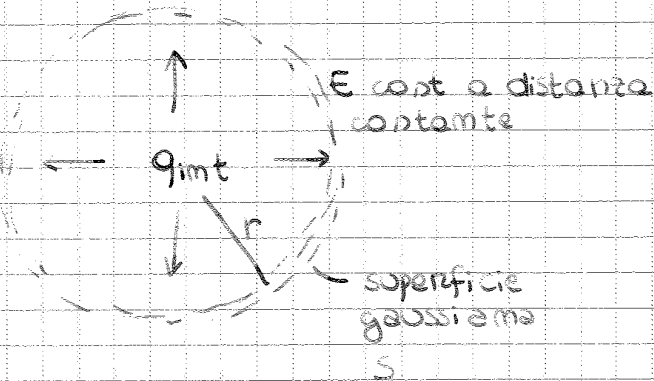 E cost a distanza
costante
qint
r
superficie
gaussiana
S